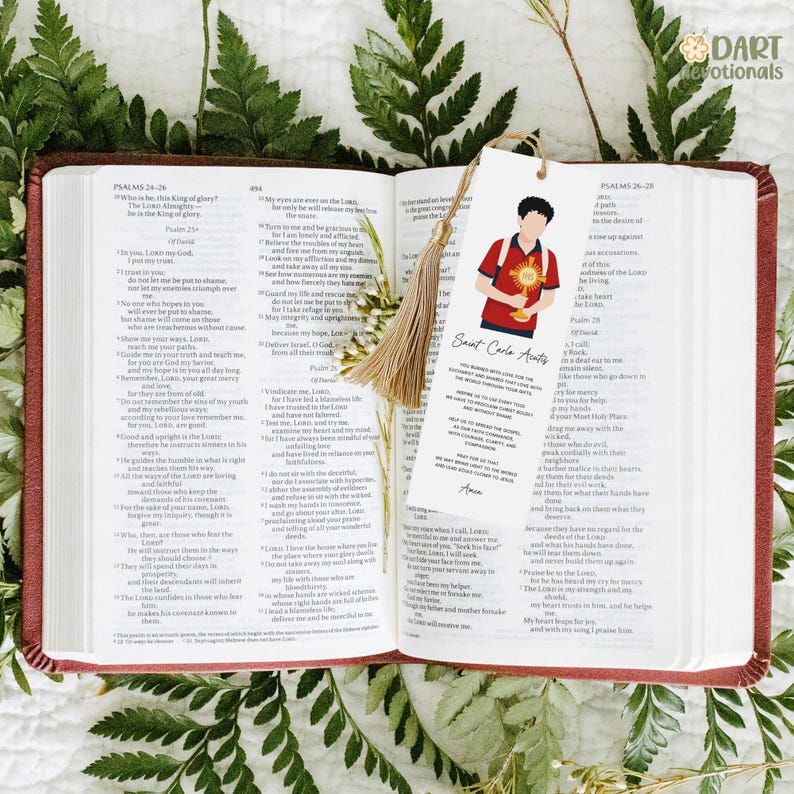 DART
devotionals
PSALMS 24–26
494
10 Who is he, this King of glory?
The LORD Almighty —
he is the King of glory.
Psalm 25a
Of David.
1 In you, LORD my God,
I put my trust.
2 I trust in you;
do not let me be put to shame,
nor let my enemies triumph over
me.
3 No one who hopes in you
will ever be put to shame,
but shame will come on those
who are treacherous without cause.
4 Show me your ways, LORD,
teach me your paths.
5 Guide me in your truth and teach me,
for you are God my Savior,
and my hope is in you all day long.
6 Remember, LORD, your great mercy
and love,
for they are from of old.
7 Do not remember the sins of my youth
and my rebellious ways;
according to your love remember me,
for you, LORD, are good.
8 Good and upright is the LORD;
therefore he instructs sinners in his
ways.
9 He guides the humble in what is right
and teaches them his way.
10 All the ways of the LORD are loving
and faithful
toward those who keep the
demands of his covenant.
11 For the sake of your name, LORD,
forgive my iniquity, though it is
great.
12 Who, then, are those who fear the
LORD?
He will instruct them in the ways
they should choose.b
13 They will spend their days in
prosperity,
and their descendants will inherit
the land.
14 The LORD confides in those who fear
him;
he makes his covenant known to
them.
15 My eyes are ever on the LORD,
for only he will release my feet from
the snare.
16 Turn to me and be gracious to me,
for I am lonely and afflicted.
17 Relieve the troubles of my heart
and free me from my anguish.
18 Look on my affliction and my distress
and take away all my sins.
19 See how numerous are my enemies
and how fiercely they hate me
20 Guard my life and rescue me;
do not let me be put to shame
for I take refuge in you.
21 May integrity and uprightness
me,
because my hope, LORD
22 Deliver Israel, O God,
from all their troubles
Psalm 26
Of David.
1 Vindicate me, LORD,
for I have led a blameless life;
I have trusted in the LORD
and have not faltered.
2 Test me, LORD, and try me,
examine my heart and my mind;
3 for I have always been mindful of your
unfailing love
and have lived in reliance on your
faithfulness.
4 I do not sit with the deceitful,
nor do I associate with hypocrites.
5 I abhor the assembly of evildoers
and refuse to sit with the wicked.
6 I wash my hands in innocence,
and go about your altar, LORD,
7 proclaiming aloud your praise
and telling of all your wonderful
deeds.
8 LORD, I love the house where you live,
the place where your glory dwells.
9 Do not take away my soul along with
sinners,
my life with those who are
bloodthirsty,
10 in whose hands are wicked schemes,
whose right hands are full of bribes.
11 I lead a blameless life;
deliver me and be merciful to me.
a This psalm is an acrostic poem, the verses of which begin with the successive letters of the Hebrew alphabet.
b 12 Or ways he chooses
c 21 Septuagint; Hebrew does not have LORD.
My feet stand on level
in the great congregation
praise the L
Saint Carlo Acutis
YOU BURNED WITH LOVE FOR THE
EUCHARIST AND SHARED THAT LOVE WITH
THE WORLD THROUGH YOUR GIFTS.
INSPIRE US TO USE EVERY TOOL
WE HAVE TO PROCLAIM CHRIST BOLDLY
AND WITHOUT SHAME.
HELP US TO SPREAD THE GOSPEL
AS OUR FAITH COMMANDS,
WITH COURAGE, CLARITY, AND
COMPASSION.
PRAY FOR US THAT
WE MAY BRING LIGHT TO THE WORLD
AND LEAD SOULS CLOSER TO JESUS.
Amen
IHS
your voice when I call, LORD;
be merciful to me and answer me.
My heart says of you, "Seek his face!"
Your face, LORD, I will seek.
Do not hide your face from me,
do not turn your servant away in
anger;
you have been my helper.
Do not reject me or forsake me,
God my Savior.
Though my father and mother forsake
me,
the LORD will receive me.
PSALMS 26–28
path
oppressors.
to the desire of
rise up against
accusations.
of this:
goodness of the LORD
the living.
take heart
the LORD.
Psalm 28
Of David.
I call;
my Rock,
turn a deaf ear to me.
remain silent,
like those who go down to
pit.
my cry for mercy
to you for help,
my hands
your Most Holy Place.
drag me away with the
wicked,
those who do evil,
speak cordially with their
neighbors
but harbor malice in their hearts.
them for their deeds
for their evil work;
them for what their hands have
done
and bring back on them what they
deserve.
Because they have no regard for the
deeds of the LORD
and what his hands have done,
he will tear them down
and never build them up again.
6 Praise be to the LORD,
for he has heard my cry for mercy.
7 The LORD is my strength and my
shield;
my heart trusts in him, and he helps
me.
My heart leaps for joy,
and with my song I praise him.